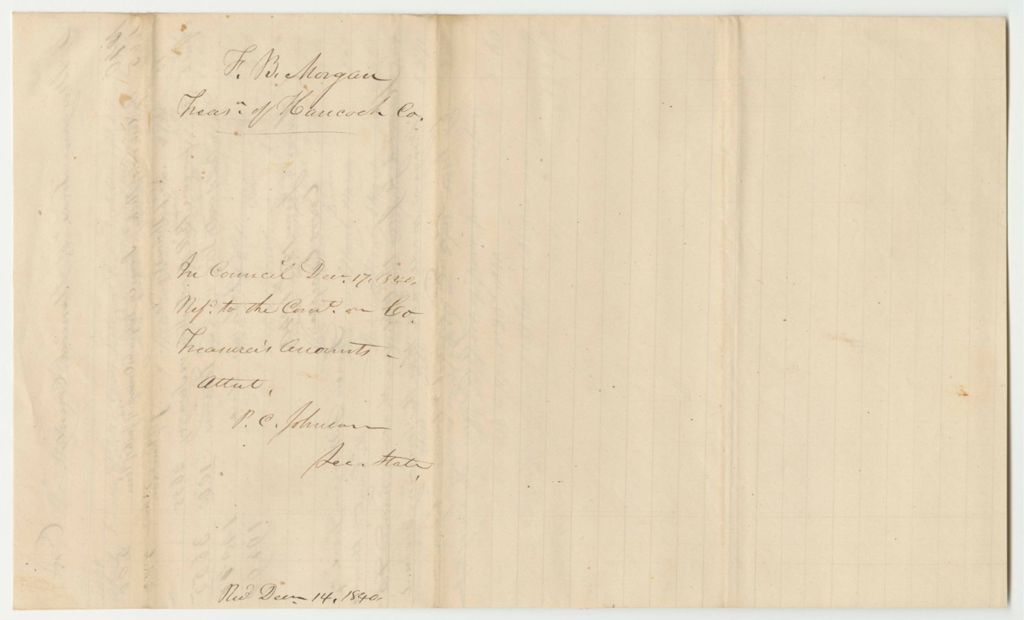 F. B. Morgan
Treasr. of Hancock Co.
In Council Decr. 17, 1840.
Refd. to the Comee. on Co.
Treasurer's Accounts -
Attest,
P. C. Johnson
Sec. State,
Recd Decem 14, 1840.